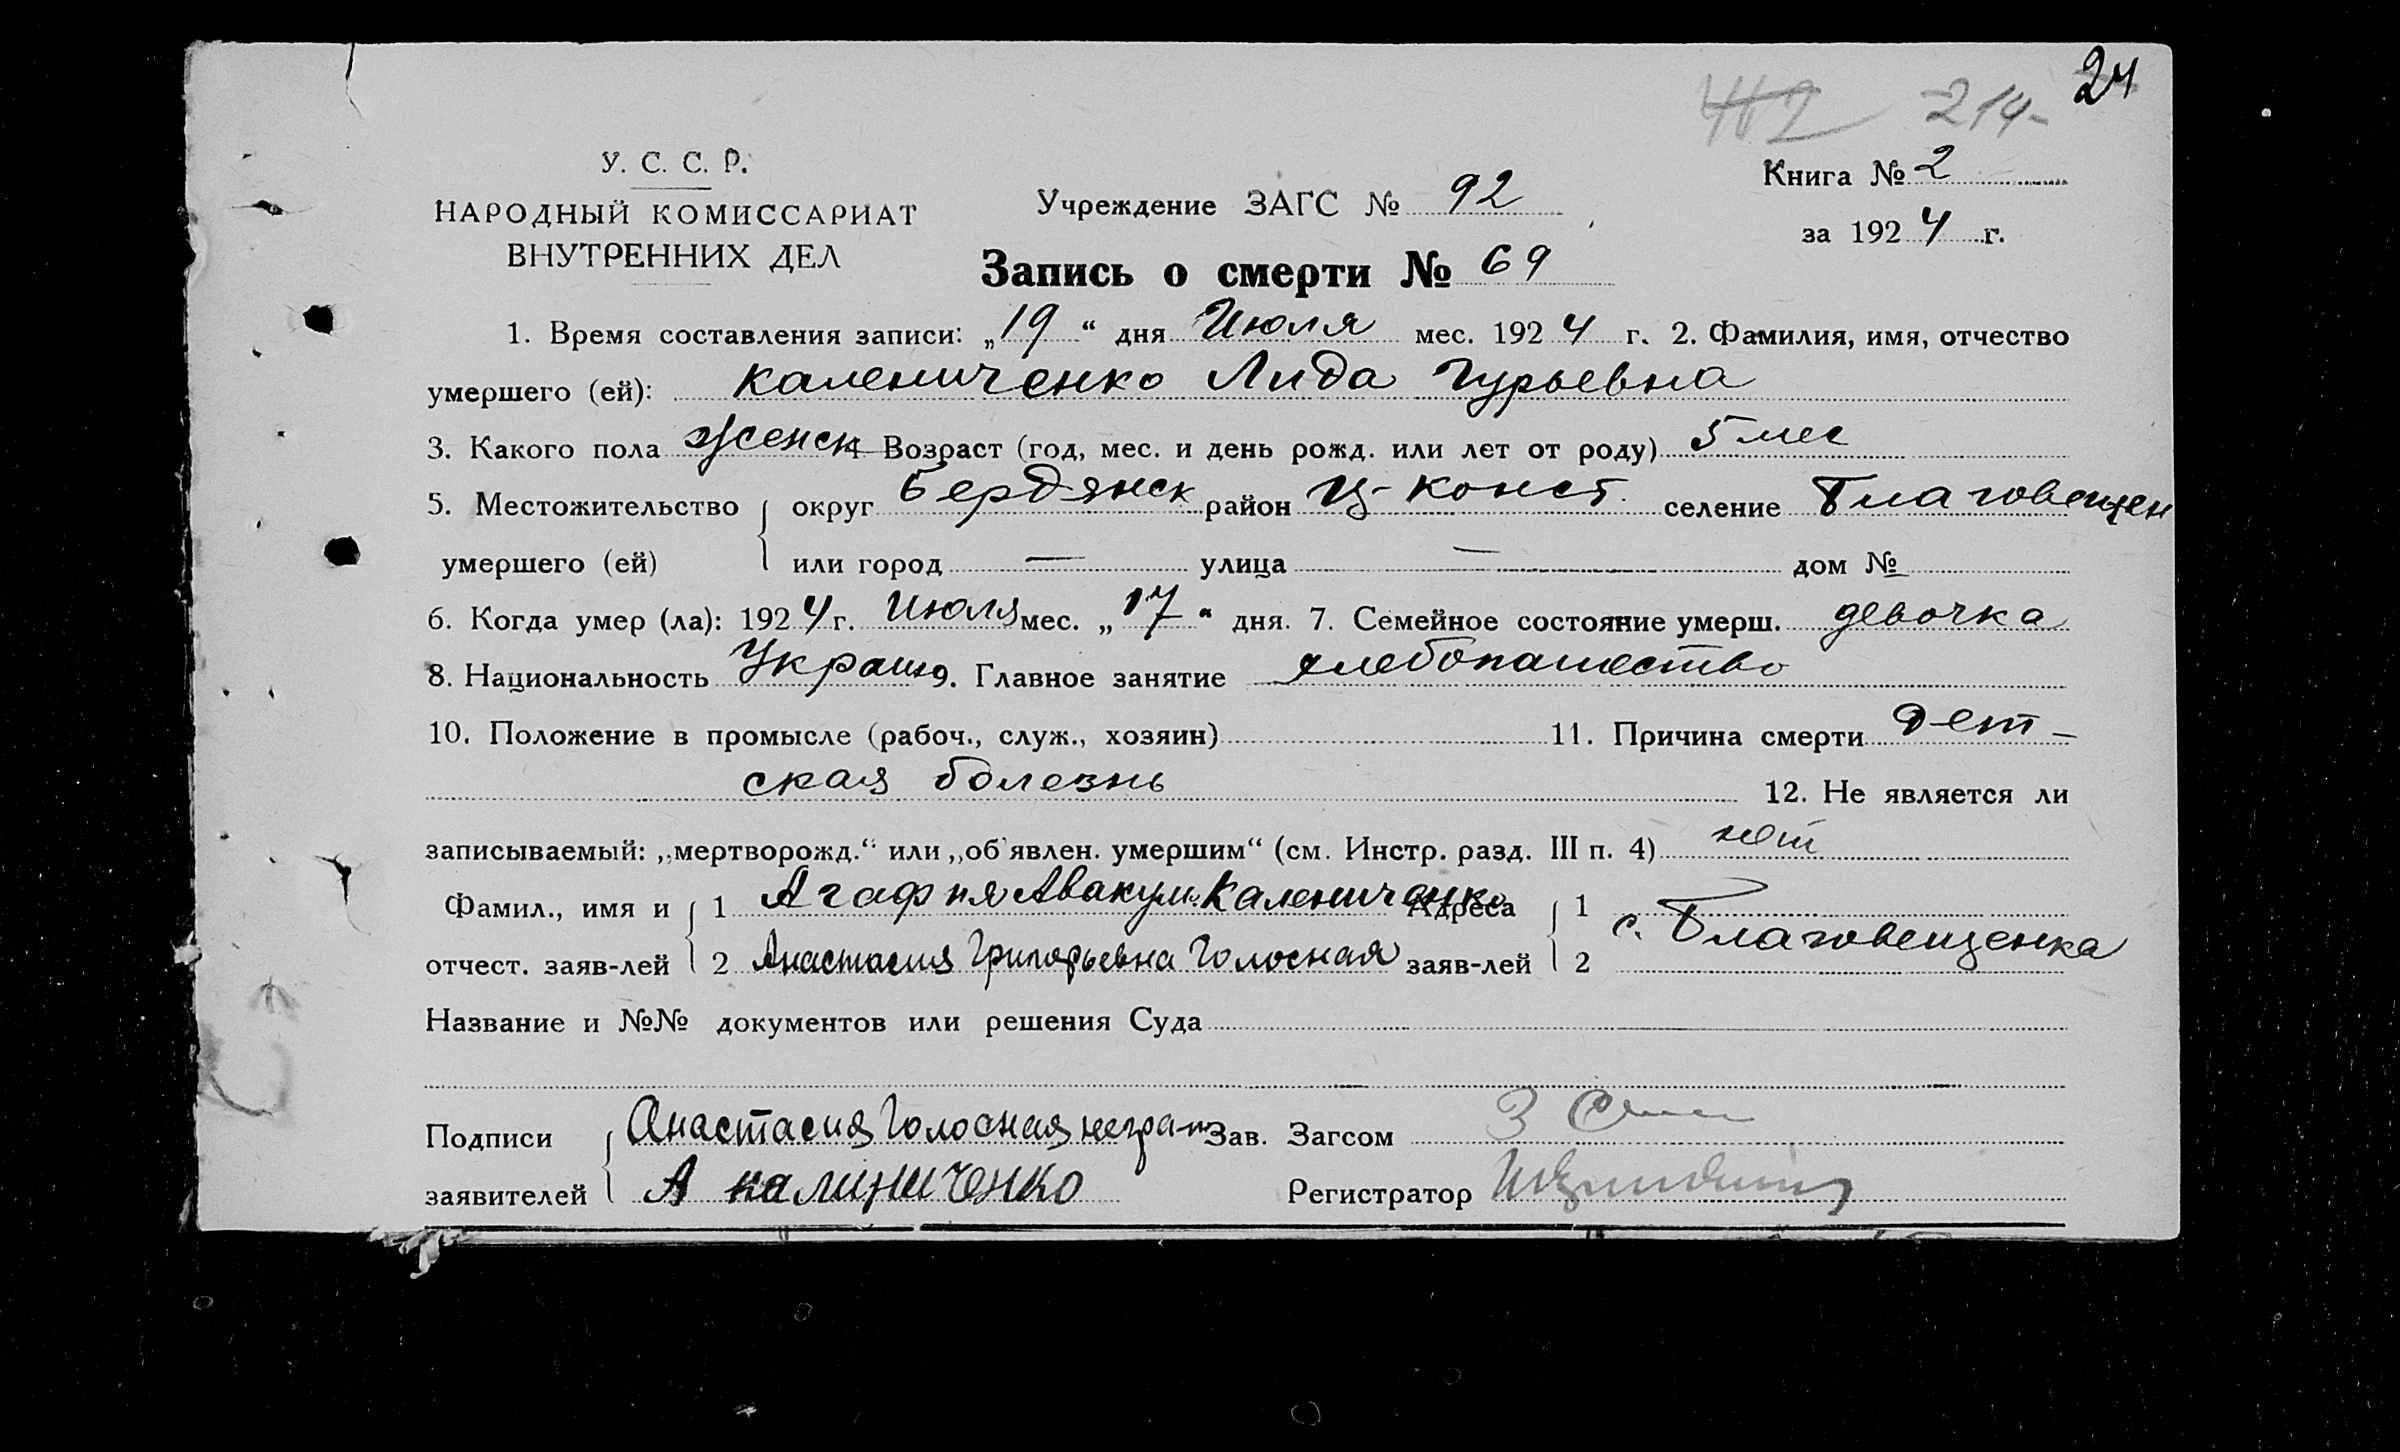 24
412 214-
У. С. С. Р.
НАРОДНЫЙ КОМИССАРИАТ
ВНУТРЕННИХ ДЕЛ
Учреждение ЗАГС № 92
Книга № 2
за 1924 г.
Запись о смерти № 69
1. Время составления записи: „19“ дня Июля мес. 1924 г. 2. Фамилия, имя, отчество
умершего (ей): Калениченко Лида Гурьевна
3. Какого пола женск 4 Возраст (год, мес. и день рожд. или лет от роду) 5 мес
5. Местожительство округ Бердянск район Ц-Конст. селение Благовещен
умершего (ей) или город — улица — дом №
6. Когда умер (ла): 1924 г. Июля мес. „17“ дня. 7. Семейное состояние умерш. девочка
8. Национальность Украин 9. Главное занятие хлебопашество
10. Положение в промысле (рабоч., служ., хозяин) 11. Причина смерти Дет-
ская болезнь 12. Не является ли
записываемый: „мертворожд.“ или „об'явлен. умершим“ (см. Инстр. разд. III п. 4) нет
Фамил., имя и 1 Агафия Авакум. Калениченко Адреса 1
отчест. заяв-лей 2 Анастасия Григорьевна Голосная заяв-лей 2 с. Благовещенка
Название и №№ документов или решения Суда
Подписи Анастасия Голосная неграм Зав. Загсом
заявителей А калиниченко Регистратор